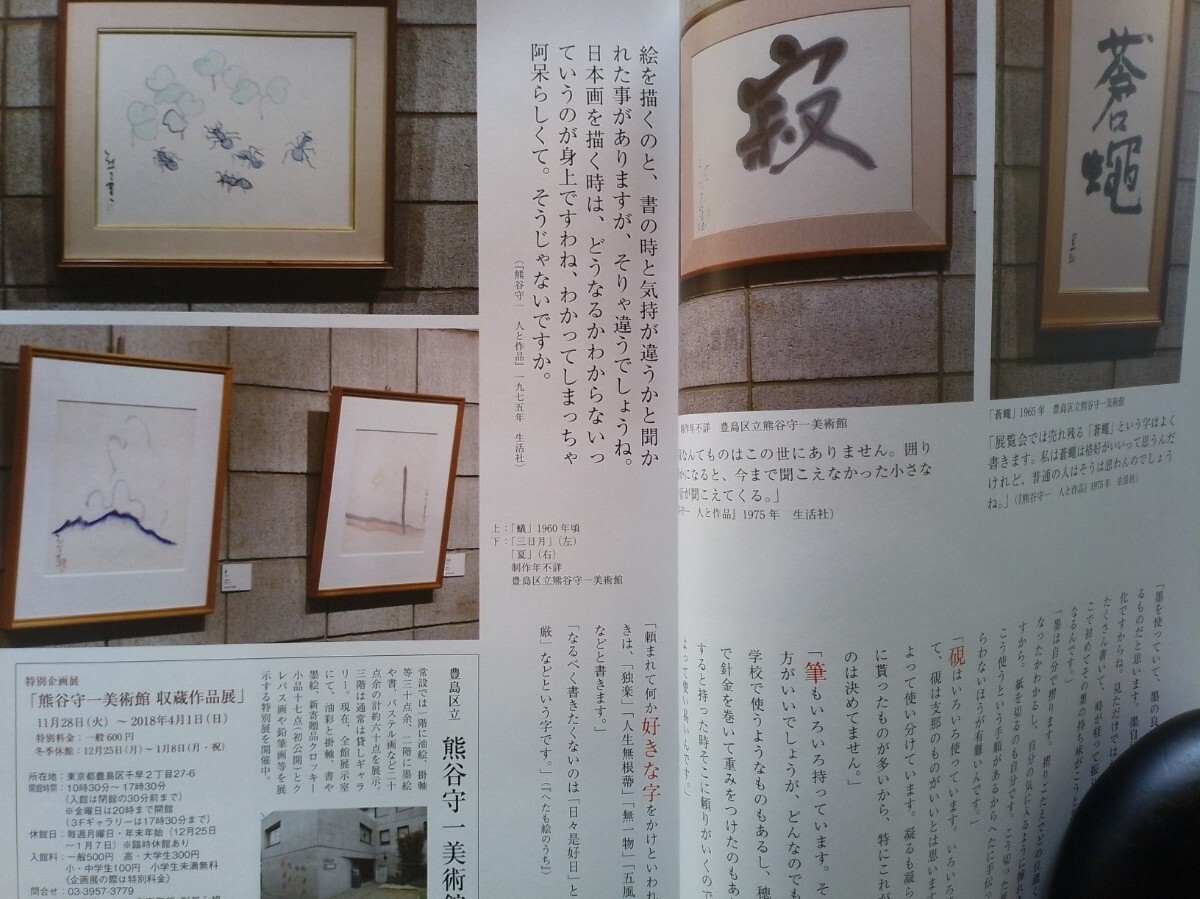 蒼蠅
寂
「蒼蠅」1965年 豊島区立熊谷守一美術館
「展覧会では売れ残る「蒼蠅」という字はよく
書きます。私は蒼蠅は格好がいいって思うんだ
けれど、普通の人はそうは思わんのでしょう
ね。」(『熊谷守一 人と作品』1975年 生活社)
制作年不詳 豊島区立熊谷守一美術館
なんてものはこの世にありません。囲り
かになると、今まで聞こえなかった小さな
音が聞こえてくる。」
人と作品』1975年 生活社)
絵を描くのと、書の時と気持が違うかと聞か
れた事がありますが、そりゃ違うでしょうね。
日本画を描く時は、どうなるかわからないっ
ていうのが身上ですわね、わかってしまっちゃ
阿呆らしくて。そうじゃないですか。
(『熊谷守一 人と作品』一九七五年 生活社)
上:「蟻」1960年頃
下:「三日月」(左)
「夏」(右)
制作年不詳
豊島区立熊谷守一美術館
「墨を使っていて、墨の良
るものだと思います。墨自
化ですからね、見ただけでは
たくさん書いて、時が経って
こで初めてその墨の持ち味が
なるんです。」
「墨は自分で摺ります。摺りごたえで
なったかわかるし、自分の気に入るように
すから。紙を切るのも自分です。こう切った
こう使うという手順があるから へたに手伝っ
らわないほうが有難いんです。」
「硯はいろいろ使っています。いろいろ
て、硯は支那のものがいいとは思います
よって使い分けています。凝るも凝ら
に貰ったものが多いから、特にこれが
のは決めてません。」
「筆もいろいろ持っています。そ
方がいいでしょうが、どんなのでも
学校で使うようなものもあるし、穂
で針金を巻いて重みをつけたのもあ
すると持った時そこに頼りがいくので
よって使い良いんです。」
「頼まれて何か好きな字をかけといわれ
きは、「独楽」「人生無根蔕」「無一物」「五風
などと書きます。」
「なるべく書きたくないのは「日々是好日」と
厳」などという字です。」(『へたも絵のうち』)
豊島区立 熊谷守一美術館
常設では一階に油絵、掛軸
等三十点余、二階に墨絵
や書、パステル画など二十
点余の計約六十点を展示。
三階は通常は貸しギャラ
リー。現在、全館展示室
にて、油彩と掛軸、書や
墨絵、新寄贈品クロッキー
小品十七点(初公開)とク
レパス画や鉛筆画等を展
示する特別展を開催中。
特別企画展
「熊谷守一美術館 収蔵作品展」
11月28日(火)〜2018年4月1日(日)
特別料金:一般600円
冬季休館:12月25日(月)〜1月8日(月・祝)
所在地:東京都豊島区千早2丁目27-6
開館時間:10時30分〜17時30分
(入館は閉館の30分前まで)
※金曜日は20時まで開館
(3Fギャラリーは17時30分まで)
休館日:毎週月曜日・年末年始(12月25日
〜1月7日)※臨時休館あり
入館料:一般500円 高・大学生300円
小・中学生100円 小学生未満無料
(企画展の際は特別料金)
問合せ:03-3957-3779